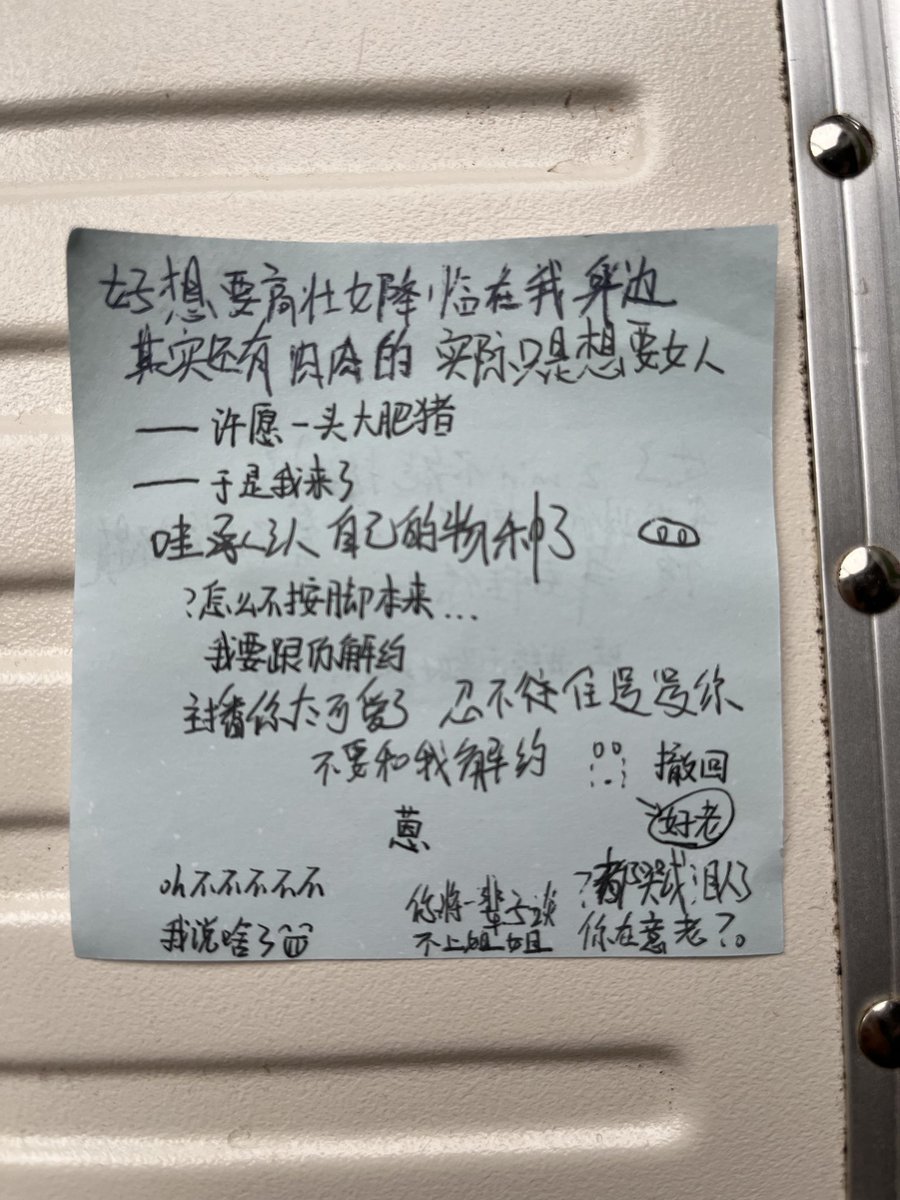 好想要高壮女降临在我身边
其实还有肉肉的 实际只是想要女人
—— 许愿一头大肥猪
—— 于是我来了
哇承认自己的物种了
?怎么不按脚本来...
我要跟你解约
主播你太可爱了 忍不住住逗逗你
不要和我解约 撤回
好老
蒽
oh不不不不不
我说啥了
你将一辈子谈
不上姐姐
?都哭成泪人了
你在意老?。